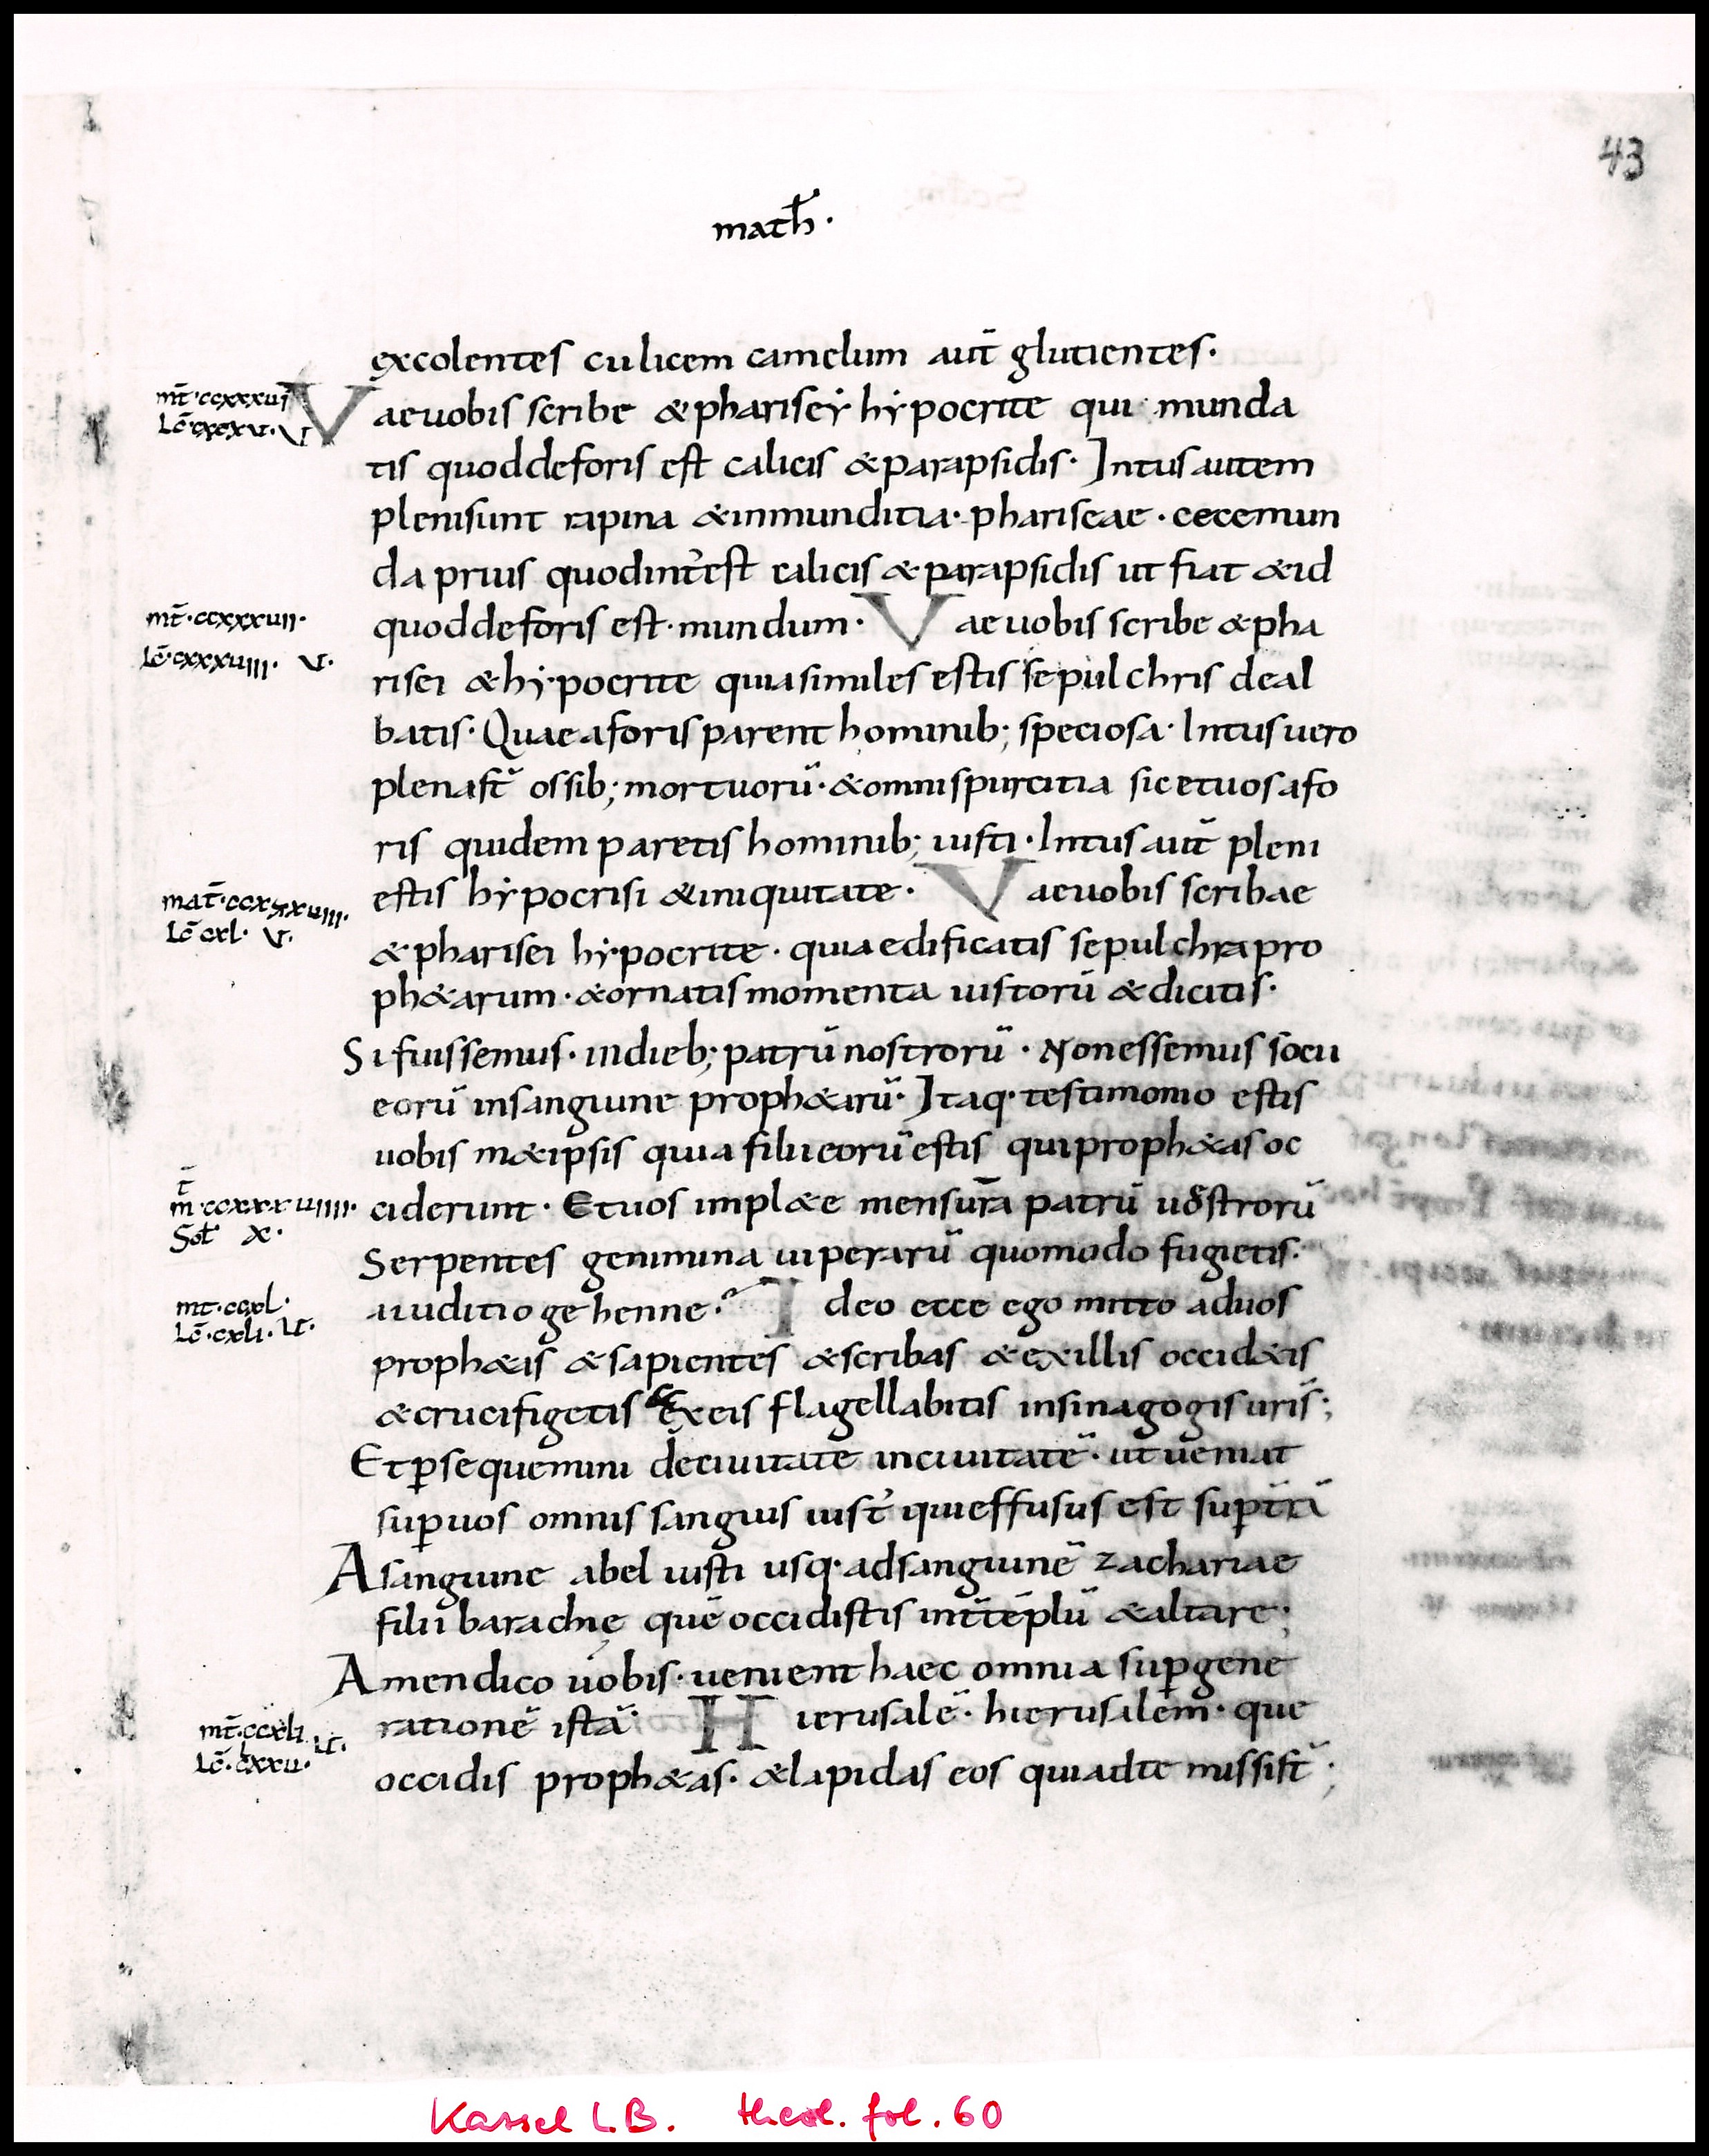 43
math̄·
excolentes culicem camelum aut̄ glutientes·
mt̄·ccxxxvi
Lc̄·cxcxv·v
Vaeuobis scribe &pharisei hẏpocrite qui munda
tis quoddeforis est calicis &parapsidis· Intus autem
plenisunt rapina &inmunditia· phariseae· cecemun
da prius quodint̄est calicis &parapsidis ut fiat &id
mt̄·ccxxxvii·
Lc̄·cxxxviiii· v·
quoddeforis est·mundum· Vaeuobis scribe &pha
risei &hẏpocrite quiasimiles estis sepulchris deal
batis· Quaeaforisparent hominib; speciosa· Intusuero
plenaft̄ ossib; mortuorū·&omnispurcitia sicetuosafo
ris quidem paretis hominib; iusti· Intus aut̄ pleni
mat̄·ccxxxviiii·
Lc̄ cxl· v·
estis hẏpocrisi &iniquitate· Vaeuobis scribae
&pharisei hẏpocrite· quiaedificatis sepulchrapro
ph&arum·&ornatismomenta iustorū &dicitis·
Si fuissemus· indieb; patrū nostrorū· Nonessemus socii
eorū insanguine proph&arū· Itaq· testimonio estis
uobis m&ipsis quia filii eorū estis quiproph&as oc
m̄t·ccxxxviiiii·
Sol x·
ciderunt· Etuos impl&e mensurā patrū uostrorū
Serpentes genimina uiperarū quomodo fugietis·
mt·ccxl·
Lc̄·cxli· v·
aiuditio gehenne· Ideo ecce ego mitto aduos
proph&as &sapientes &scribas &exillis occid&is
&crucifigetis &exeis flagellabitis insinagogis uris̄;
Etpsequemini deciuitate inciuitatē· ut ueniat
sup uos omnis sanguis iust' quieffusus est sup tr̄ā
Asanguine abel iusti usq· adsanguinē zachariae
filii barachię quē occidistis int̄ tēplū &altare;
Amendico uobis· uenient haec omnia sup gene
mt̄·ccxli
Lc̄·cxxii· v·
rationē istā· Hierusalē· hierusalem· que
occidis proph&as· &lapidas eos quiadte missist̄;
Kassel L.B. theol. fol. 60